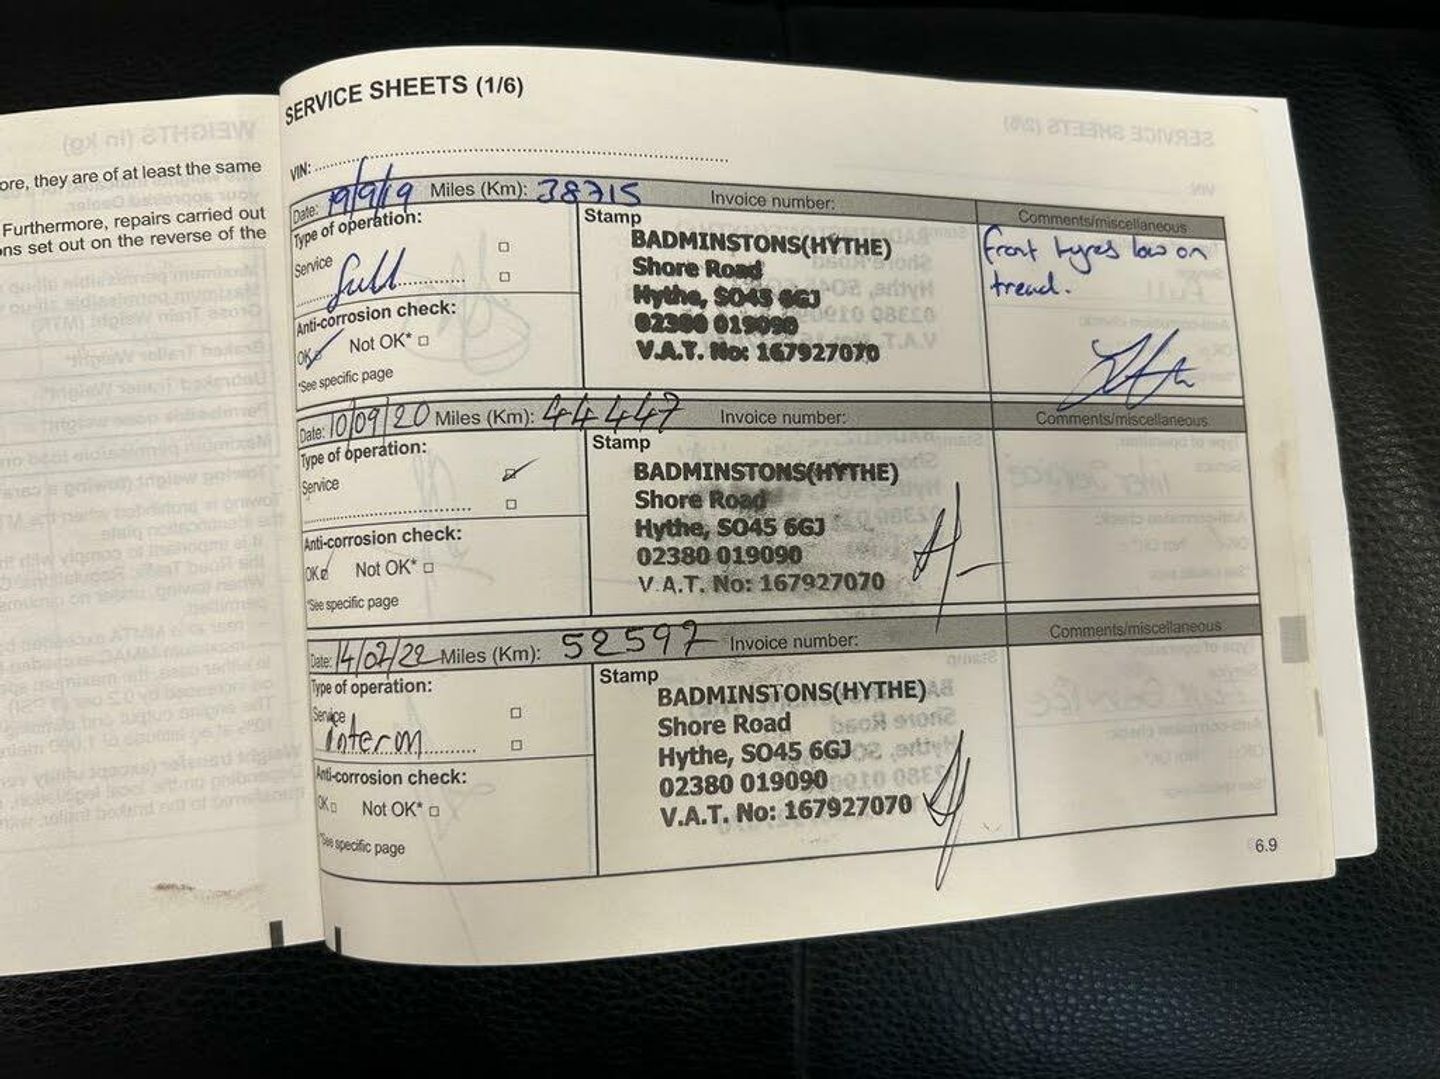 ore, they are of at least the same
Furthermore, repairs carried out
ns set out on the reverse of the
WEIGHTS (in kg)
SERVICE SHEETS (1/6)
SERVICE SHEETS (2/6)
VIN:
Date: 19/9/19 Miles (Km): 38715 Invoice number: Comments/miscellaneous
Type of operation:
Service
full
Anti-corrosion check:
OK Not OK*
*See specific page
Stamp
BADMINSTONS(HYTHE)
Shore Road
Hythe, SO45 6GJ
02380 019090
V.A.T. No: 167927070
front tyres low on
tread.
Date: 10/09/20 Miles (Km): 44447 Invoice number: Comments/miscellaneous
Type of operation:
Service
Anti-corrosion check:
OK Not OK*
*See specific page
Stamp
BADMINSTONS(HYTHE)
Shore Road
Hythe, SO45 6GJ
02380 019090
V.A.T. No: 167927070
Date: 14/02/22 Miles (Km): 52597 Invoice number: Comments/miscellaneous
Type of operation:
Service
interm
Anti-corrosion check:
OK Not OK*
*See specific page
Stamp
BADMINSTONS(HYTHE)
Shore Road
Hythe, SO45 6GJ
02380 019090
V.A.T. No: 167927070
6.9